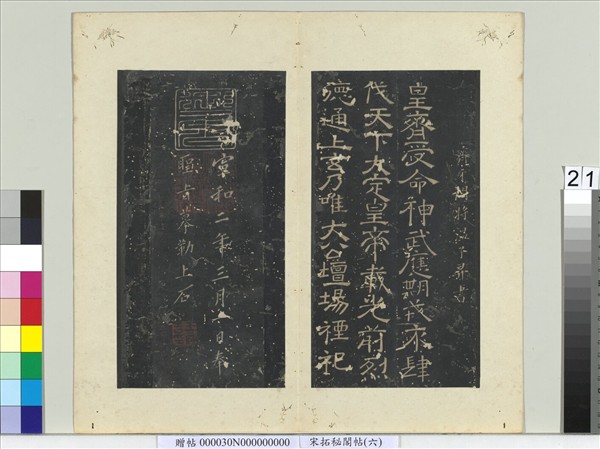 皇齊受命神武應期義承肆
伐天下大定皇帝載光前烈
德通上玄乃唯大合壇場禋祀
宣和二年三月一日奉
聖旨摹勒上石
21
贈帖 000030N000000000 宋拓秘閣帖(六)